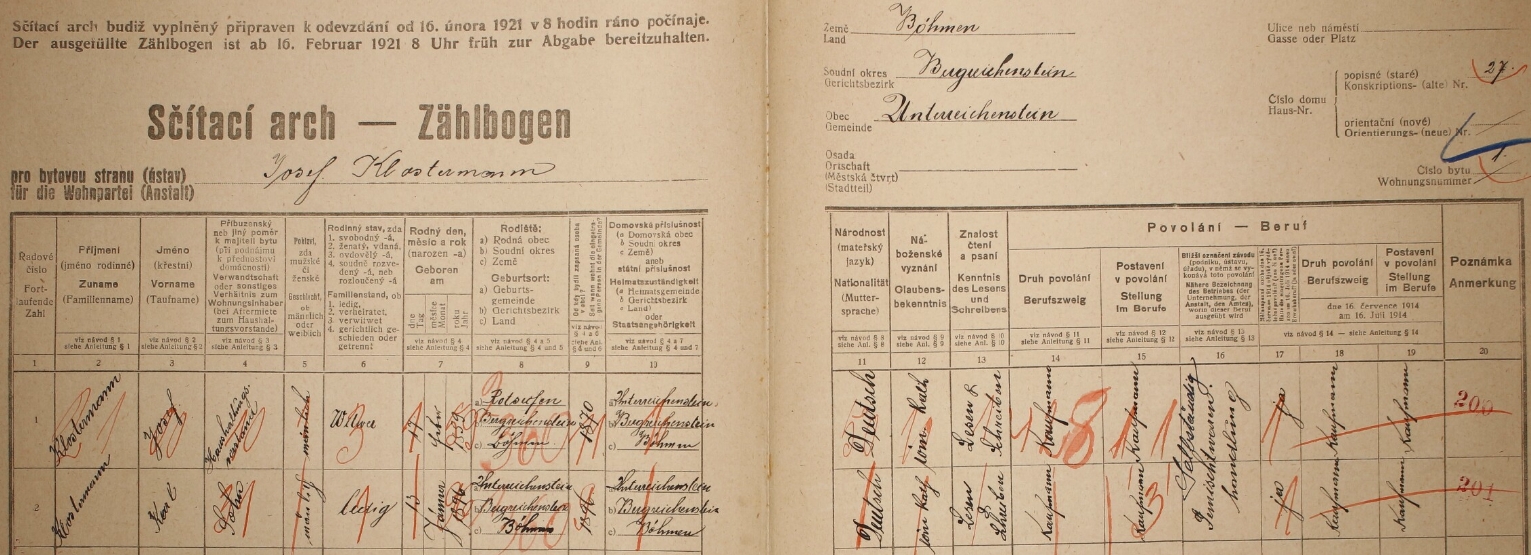 Sčítací arch budiž vyplněný připraven k odevzdání od 16. února 1921 v 8 hodin ráno počínaje.
Der ausgefüllte Zählbogen ist ab 16. Februar 1921 8 Uhr früh zur Abgabe bereitzuhalten.
Sčítací arch — Zählbogen
pro bytovou stranu (ústav)
für die Wohnpartei (Anstalt)
Josef Klostermann
Země
Land
Böhmen
Soudní okres
Gerichtsbezirk
Bergreichenstein
Obec
Gemeinde
Unterreichenstein
Osada
Ortschaft
(Městská čtvrť)
(Stadtteil)
Ulice neb náměstí
Gasse oder Platz
Číslo domu
Haus-Nr.
popisné (staré)
Konskriptions- (alte) Nr.
27.
orientační (nové)
Orientierungs- (neue) Nr.
Číslo bytu
Wohnungsnummer
1.
Řadové
číslo
Fort-
laufende
Zahl
Příjmení
(jméno rodinné)
Zuname
(Familienname)
viz návod § 1
siehe Anleitung § 1
Jméno
(křestní)
Vorname
(Taufname)
viz návod § 2
siehe Anleitung § 2
Příbuzenský
neb jiný poměr
k majiteli bytu
(při podnájmu
k přednostovi
domácnosti)
Verwandtschaft
oder sonstiges
Verhältnis zum
Wohnungsinhaber
(bei Aftermiete
zum Haushal-
tungsvorstande)
viz návod § 3
siehe Anleitung § 3
Pohlaví,
zda
mužské
či
ženské
Geschlecht,
ob
männlich
oder
weiblich
Rodinný stav, zda
1. svobodný -á,
2. ženatý, vdaná,
3. ovdovělý -á,
4. soudně rozve-
dený -á, neb
rozloučený -á
Familienstand, ob
1. ledig,
2. verheiratet,
3. verwitwet
4. gerichtlich ge-
schieden oder
getrennt
Rodný den,
měsíc a rok
(narozen -a)
Geboren
am
dne
Tag
měsíce
Monat
roku
Jahr
viz návod § 4
siehe Anleitung § 4
Rodiště:
a) Rodná obec
b) Soudní okres
c) Země
Geburtsort:
a) Geburts-
gemeinde
b) Gerichtsbezirk
c) Land
Domovská příslušnost
(a Domovská obec
b Soudní okres
c Země)
aneb
státní příslušnost
Heimatszuständigkeit
(a Heimatsgemeinde
b Gerichtsbezirk
c Land)
oder
Staatsangehörigkeit
Národnost
(mateřský
jazyk)
Nationalität
(Mutter-
sprache)
viz návod § 8
siehe Anl. § 8
Ná-
boženské
vyznání
Glaubens-
bekenntnis
viz návod § 9
siehe Anl. § 9
Znalost
čtení
a psaní
Kenntnis
des Lesens
und
Schreibens
viz návod § 10
siehe Anl. § 10
Povolání — Beruf
Druh povolání
Berufszweig
viz návod § 11
siehe Anleitung § 11
Postavení
v povolání
Stellung
im Berufe
viz návod § 12
siehe Anleitung § 12
Bližší označení závodu
(podniku, ústavu,
úřadu), v němž se vy-
konává toto povolání
Nähere Bezeichnung
des Betriebes (der
Unternehmung, der
Anstalt, des Amtes),
worin dieser Beruf
ausgeübt wird
viz návod § 13
siehe Anleitung § 13
Druh povolání
Berufszweig
Postavení
v povolání
Stellung
im Berufe
dne 16. července 1914
am 16. Juli 1914
viz návod § 14 — siehe Anleitung § 14
Poznámka
Anmerkung
1 2 3 4 5 6 7 8 9 10 11 12 13 14 15 16 17 18 19 20
1
Klostermann
Josef
Haushaltungs-
vorstand
männlich
Witwer
3
17
1870
a) Rotseifen
b) Bergreichenstein
c) Böhmen
a) Unterreichenstein
b) Bergreichenstein
c) Böhmen
Deutsch
röm. Kath
Lesen &
Schreiben
Kaufmann
Kaufmann
Selbständig
Gemischtwarenhandlung
ja
Kaufmann
Kaufmann
200
2
Klostermann
Karl
Sohn
männlich
ledig
13
Jänner
1896
a) Unterreichenstein
b) Bergreichenstein
c) Böhmen
1896
a) Unterreichenstein
b) Bergreichenstein
c) Böhmen
Deutsch
röm Kath
Lesen
Schreiben
Kaufmann
Kaufmann
ja
Kaufmann
Kaufmann
201